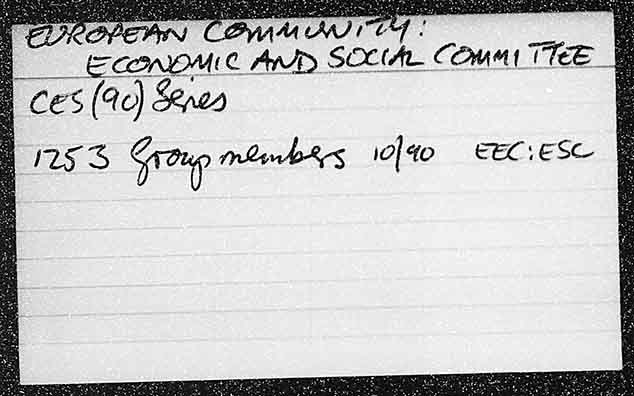 EUROPEAN COMMUNITY:
ECONOMIC AND SOCIAL COMMITTEE
CES (90) Series
1253 Group members 10/90 EEC:ESC